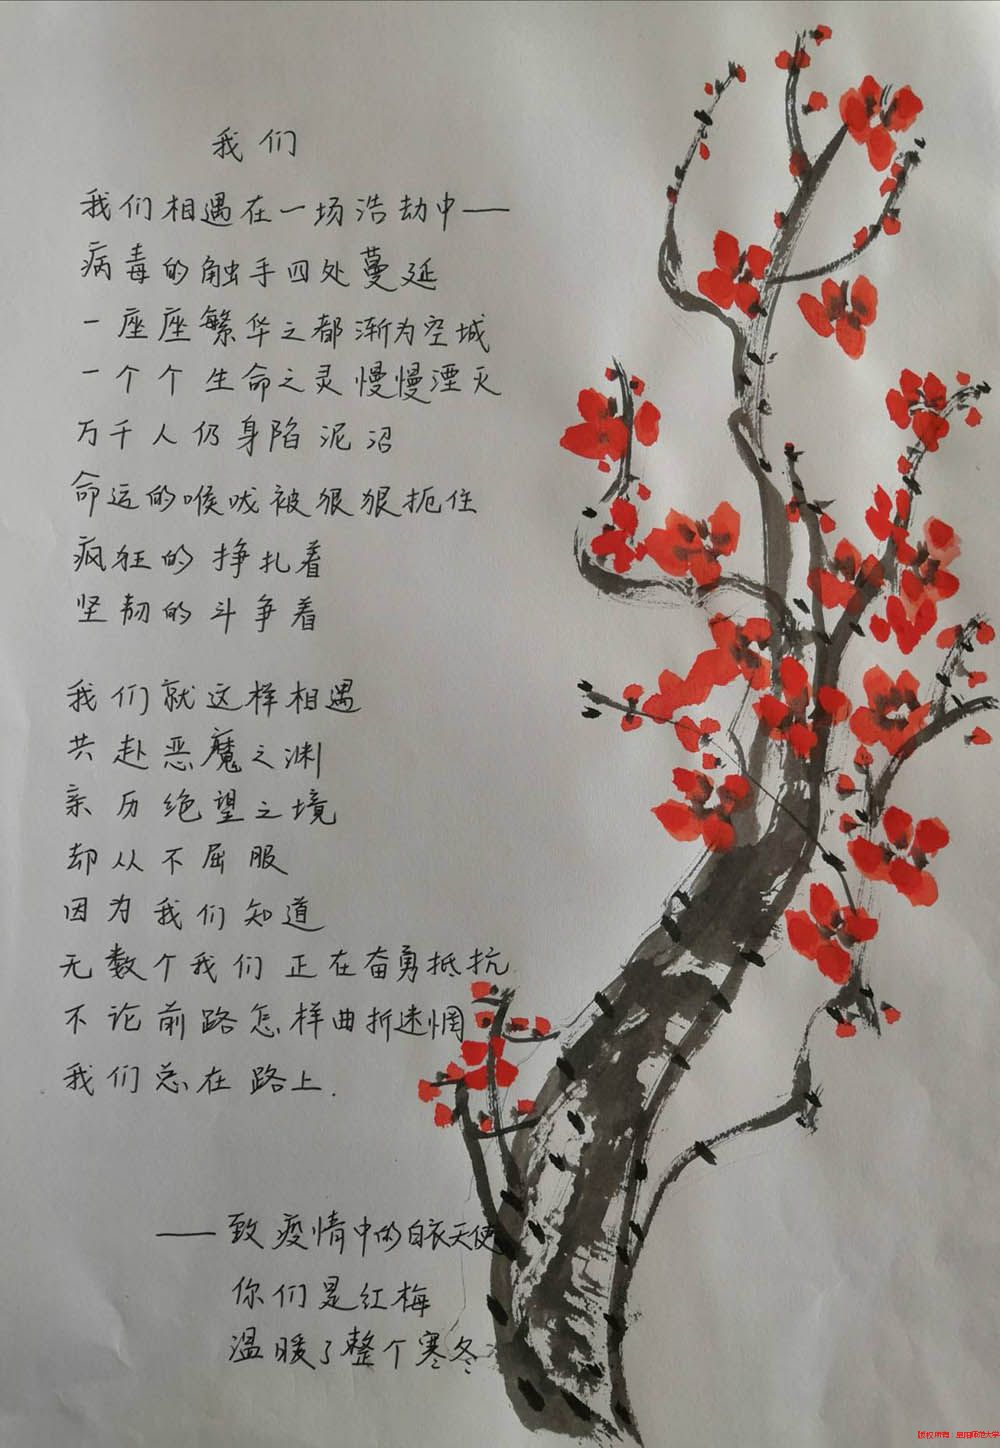 我们
我们相遇在一场浩劫中——
病毒的触手四处蔓延
一座座繁华之都渐为空城
一个个生命之灵慢慢湮灭
万千人仍身陷泥沼
命运的喉咙被狠狠扼住
疯狂的挣扎着
坚韧的斗争着
我们就这样相遇
共赴恶魔之渊
亲历绝望之境
却从不屈服
因为我们知道
无数个我们正在奋勇抵抗
不论前路怎样曲折迷惘
我们总在路上.
——致疫情中的白衣天使
你们是红梅
温暖了整个寒冬
版权所有：阜阳师范大学